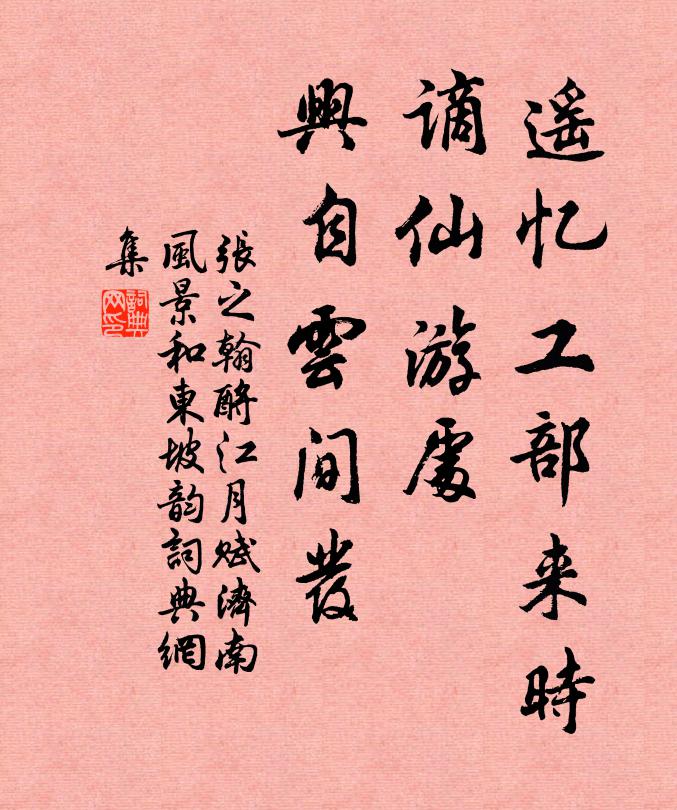 遥忆工部来时
谪仙游處
興自雲间發
張之翰酹江月賦濟南
風景和東坡韵詞典網
集
詞典
网印